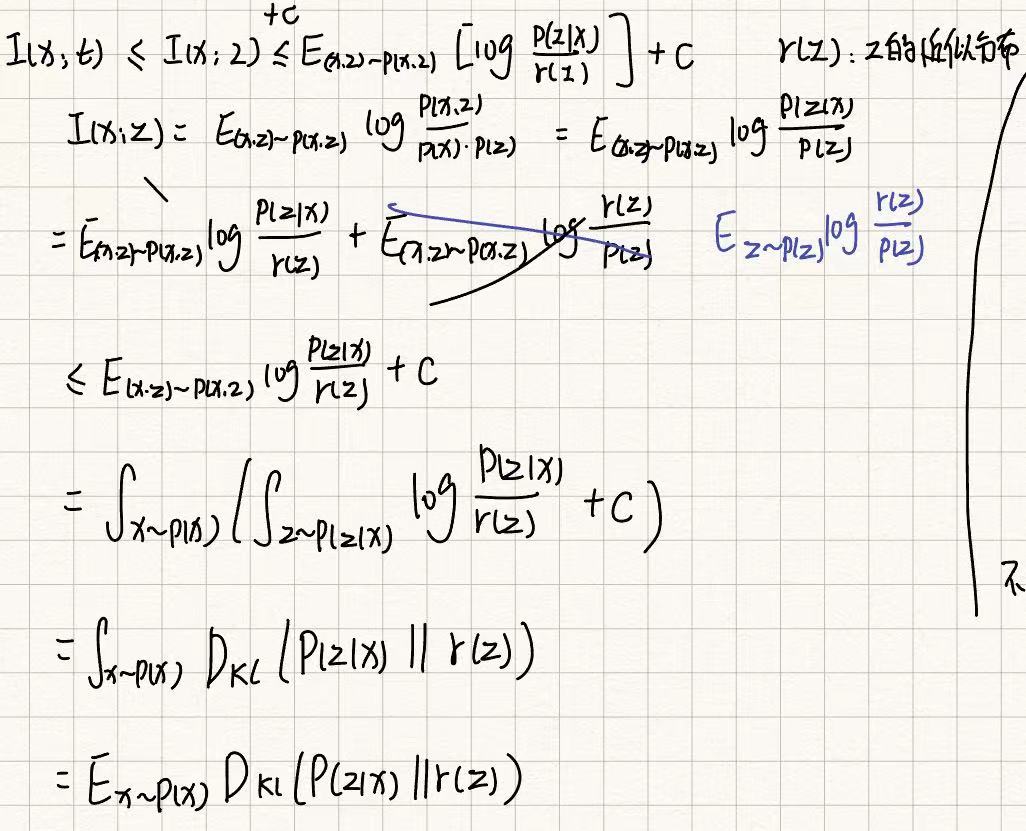 +C
I(x;t) ≤ I(x;z) ≤ E_{(x,z)~P(x,z)} [log P(z|x)/r(z)] + C r(z): z的近似分布
I(x;z) = E_{(x,z)~P(x,z)} log P(x,z)/P(x)·P(z) = E_{(x,z)~P(x,z)} log P(z|x)/P(z)
= E_{(x,z)~P(x,z)} log P(z|x)/r(z) + E_{(x,z)~P(x,z)} log r(z)/P(z) E_{z~P(z)} log r(z)/P(z)
≤ E_{(x,z)~P(x,z)} log P(z|x)/r(z) + C
= ∫_{x~P(x)} (∫_{z~P(z|x)} log P(z|x)/r(z) + C)
不
= ∫_{x~P(x)} D_{KL} (P(z|x) || r(z))
= E_{x~P(x)} D_{KL} (P(z|x) || r(z))